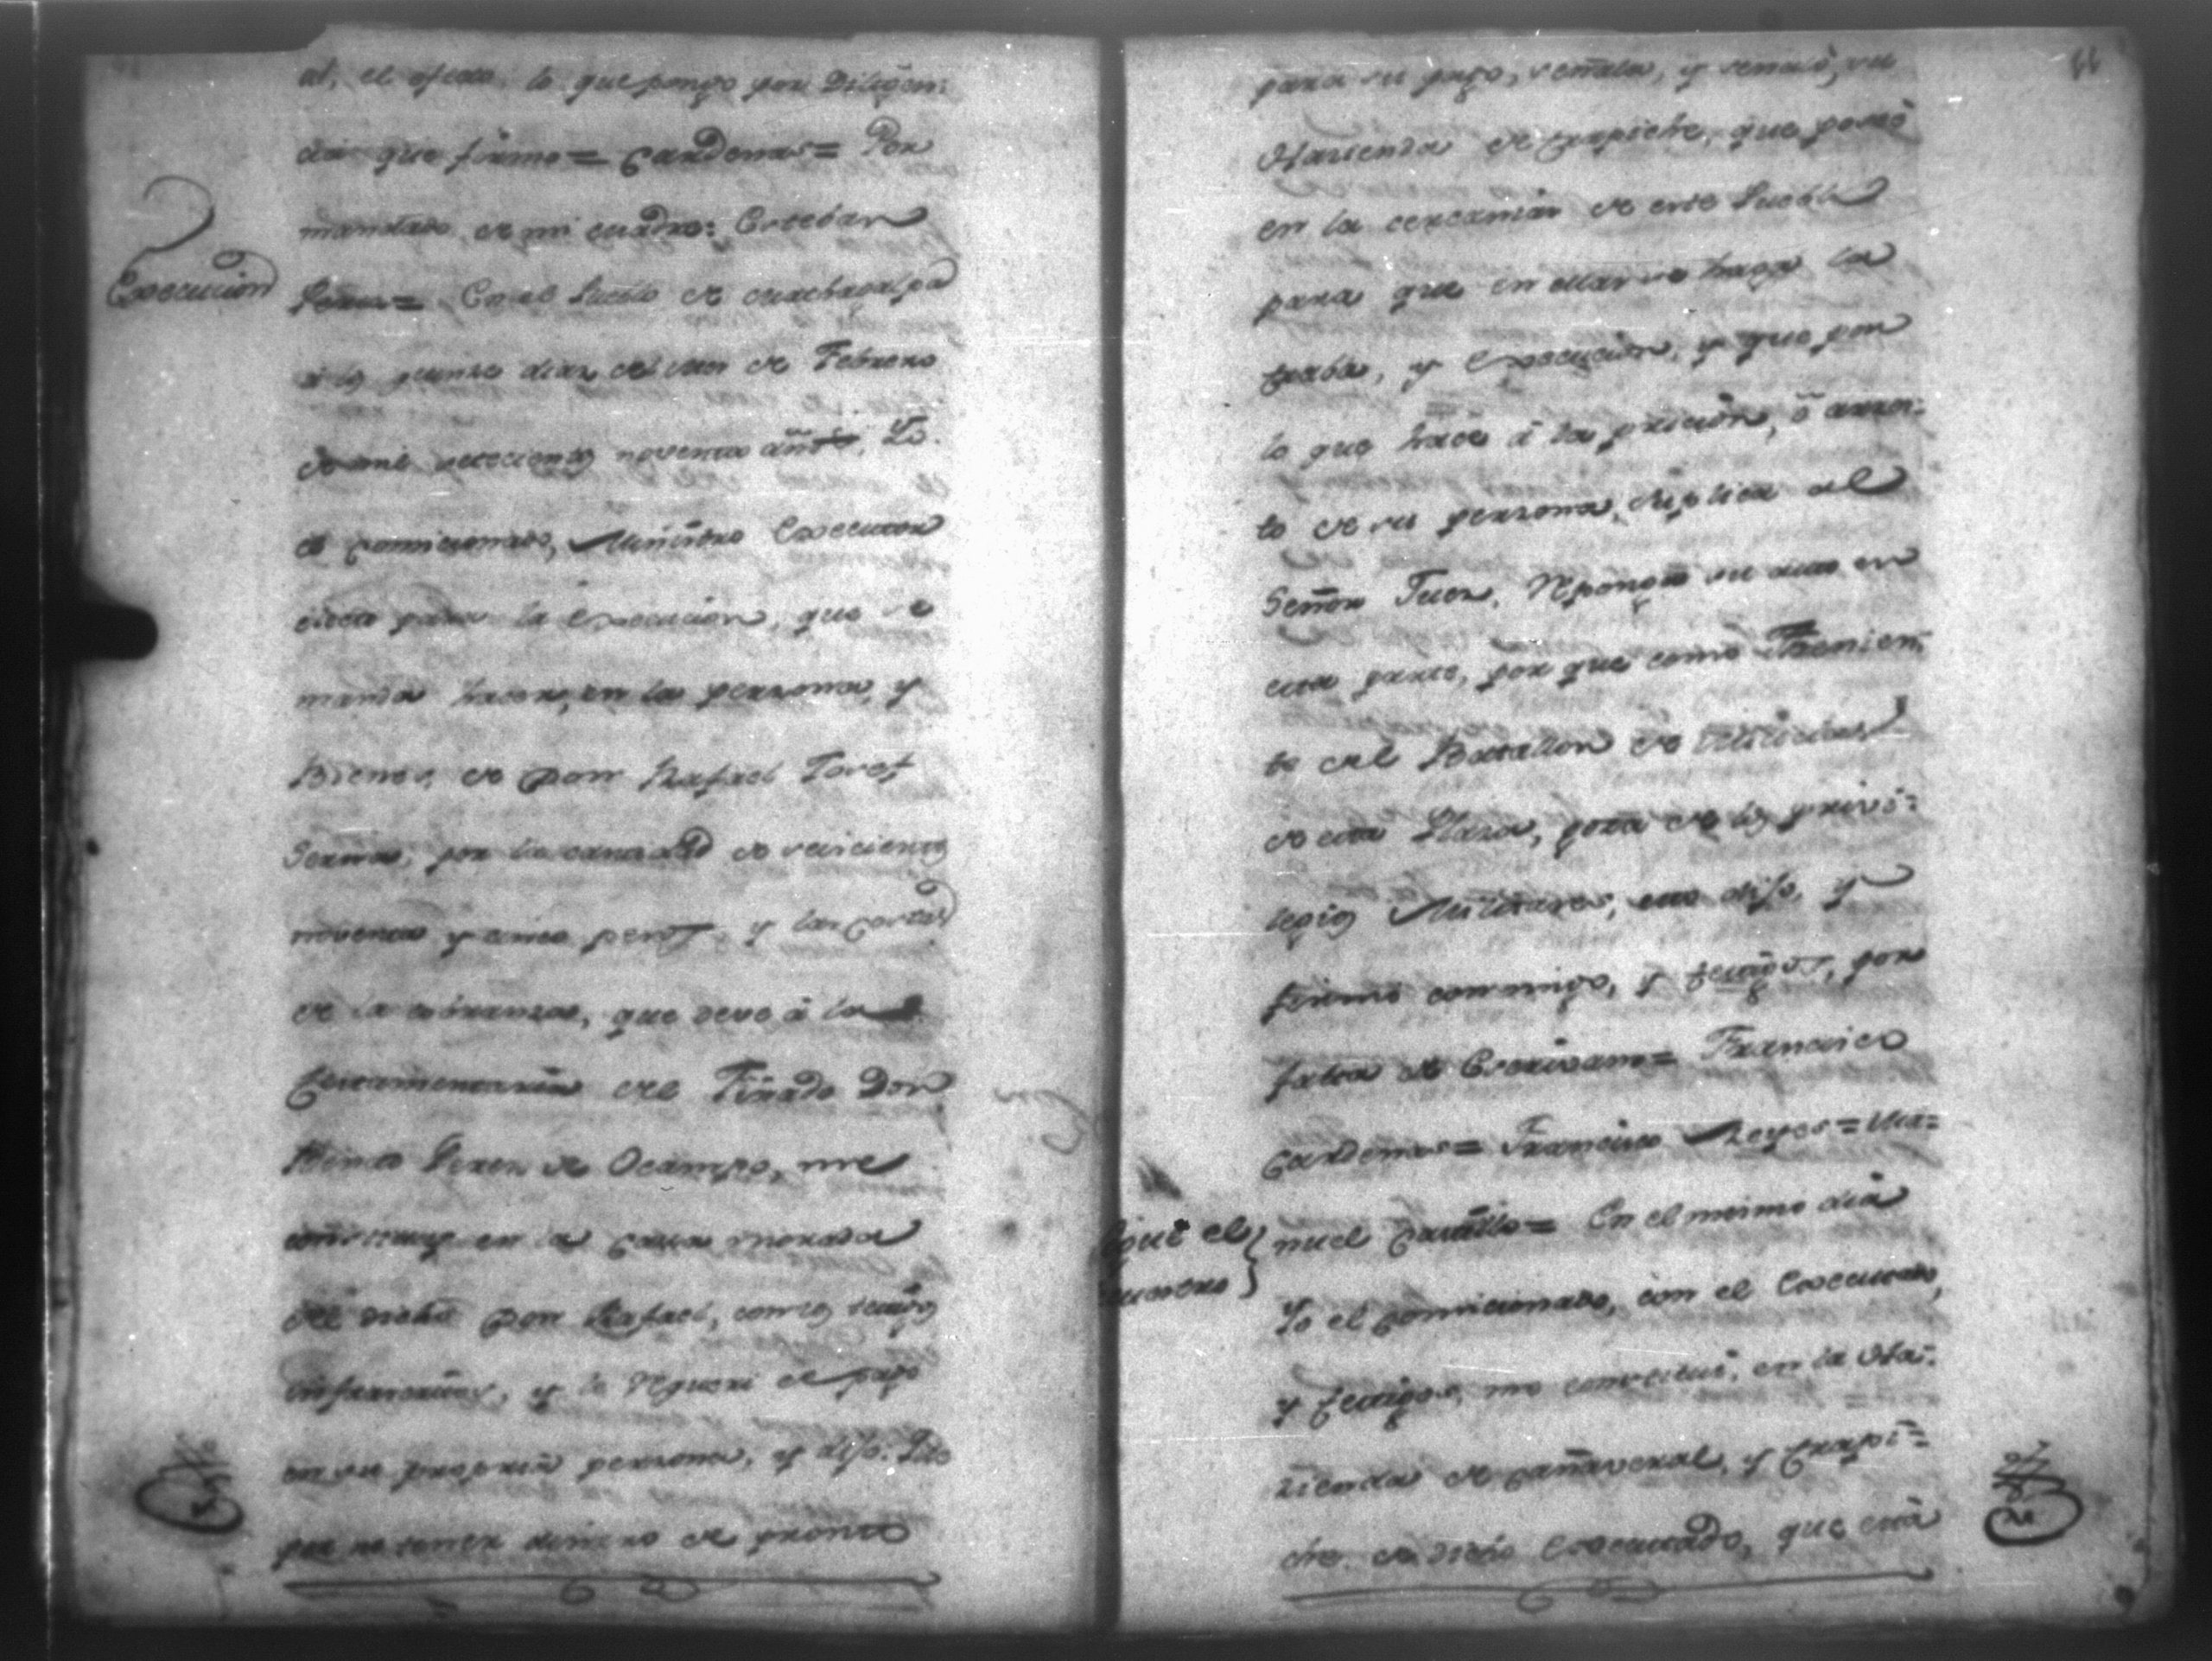 al, el efecto. lo que pongo por Diligen:
cia que firmo = Cardenas = Por
mandado de mi quadre: Esteban
Execucion
Serna = En el Pueblo de
á los quinse dias del mes de Febrero
de mil setecientos noventa años. Yo.
el Comicionado, Ministro Executor
electo para la Execucion, que se
manda hacer, en la perzona, y
Bienes, de Don Rafael Joref
Serna, por la cantidad de seicientos
noventa y cinco pesos y las Costas
de la cobranza, que deve á la
Testamentaria del Finado Don
Benito Perez de Ocampo, me
constituy en la Casa morada
del dicho Don Rafael, con los testigos
infraescritos, y le Requeri el pago
en su propria perzona, y dijo. Que
por no tener dinero de pronto
para su pago, señala, y señaló, su
Hacienda de Trapiche, que poseé
en la cercania de este Pueblo
para que en ella se haga la
traba, y Execucion, y que por
lo que hace á la pricion, ó arres:
to de su perzona, suplica al
Señor Juez, Reponga su auto en
esta parte, por que como Thenien:
te del Batallon de Milicias
de esta Plaza, goza de los privi:
legios Militares, esto dijo, y
firmó conmigo, y testigos, por
falta de Escrivano = Francisco
Cardenas = Francisco Reyes = Ma:
nuel Carrillo = En el mismo dia
Sigue el
Yo el Comicionado, con el Executado,
y testigos, me constitui, en la Ha:
zienda de Cañaveral, y Trapi:
che. de dicho Executado, que está